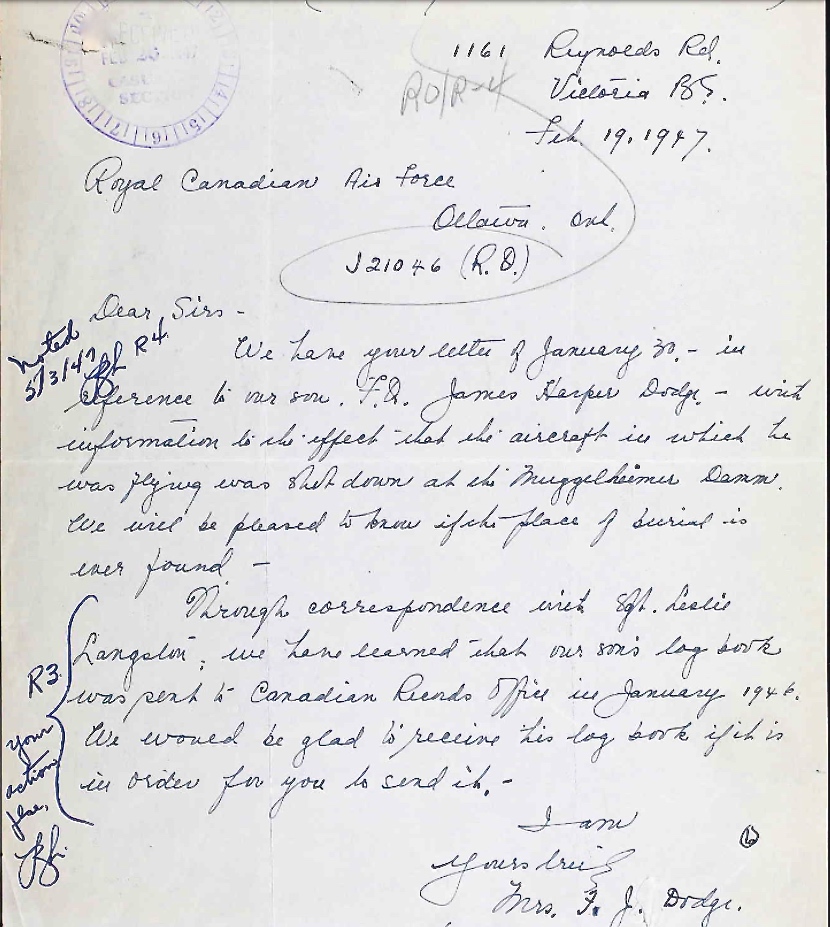 FEB 26 1947
SECTION
1161 Reynolds Rd.
RO/R-4
Victoria B.C.
Feb. 19, 1947.
Royal Canadian Air Force
Ottawa. Ont.
J21046 (R.O.)
Dear Sirs -
noted
5/3/47
R4
We have your letter of January 30, - in
reference to our son, F.O. James Harper Dodge, - with
information to the effect that the aircraft in which he
was flying was shot down at the Muggelheimer Damm.
We will be pleased to know if the place of burial is
ever found -
Through correspondence with Sgt. Leslie
Langston, we have learned that our son's log book
was sent to Canadian Records Office in January 1946.
We would be glad to receive his log book if it is
in order for you to send it. -
R3.
your
action
pse,
I am
Yours truly
Mrs. F. J. Dodge.